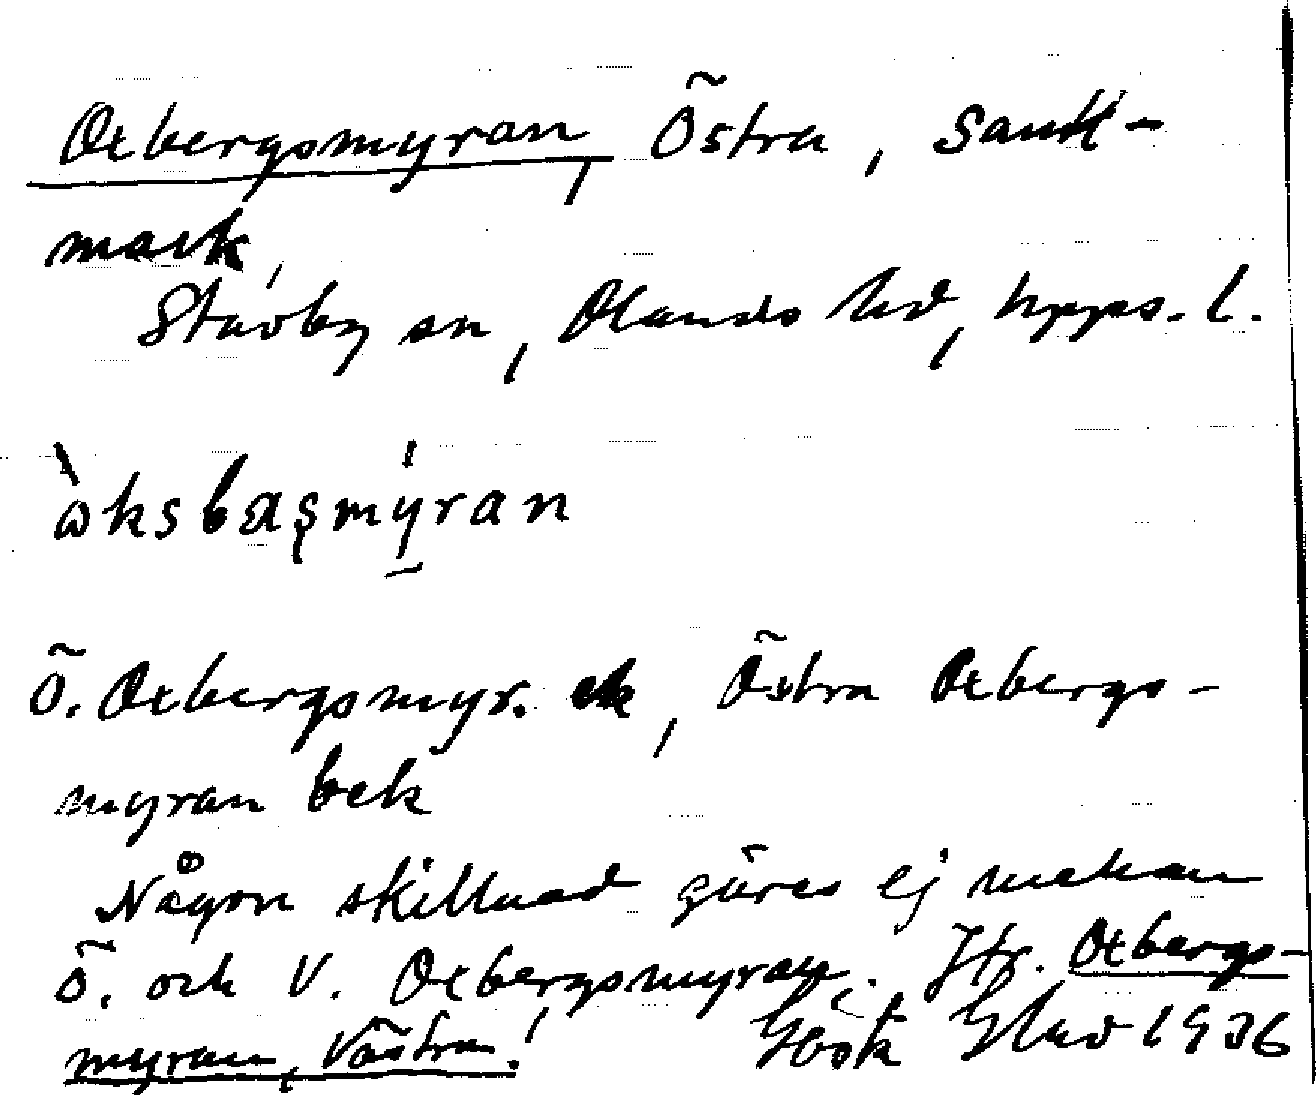 Oxbergsmyran, Östra, Sank-
mark,
Stavby sn, Olands hd, Upps. l.
òksbaşmýran
Ö. Oxbergsmyr. ek, Östra Oxbergs-
myran bek
Någon skillnad göres ej mellan
Ö. och V. Oxbergsmyran. Jfr. Oxbergs-
myran, Västra!
Gösta Glad 1936